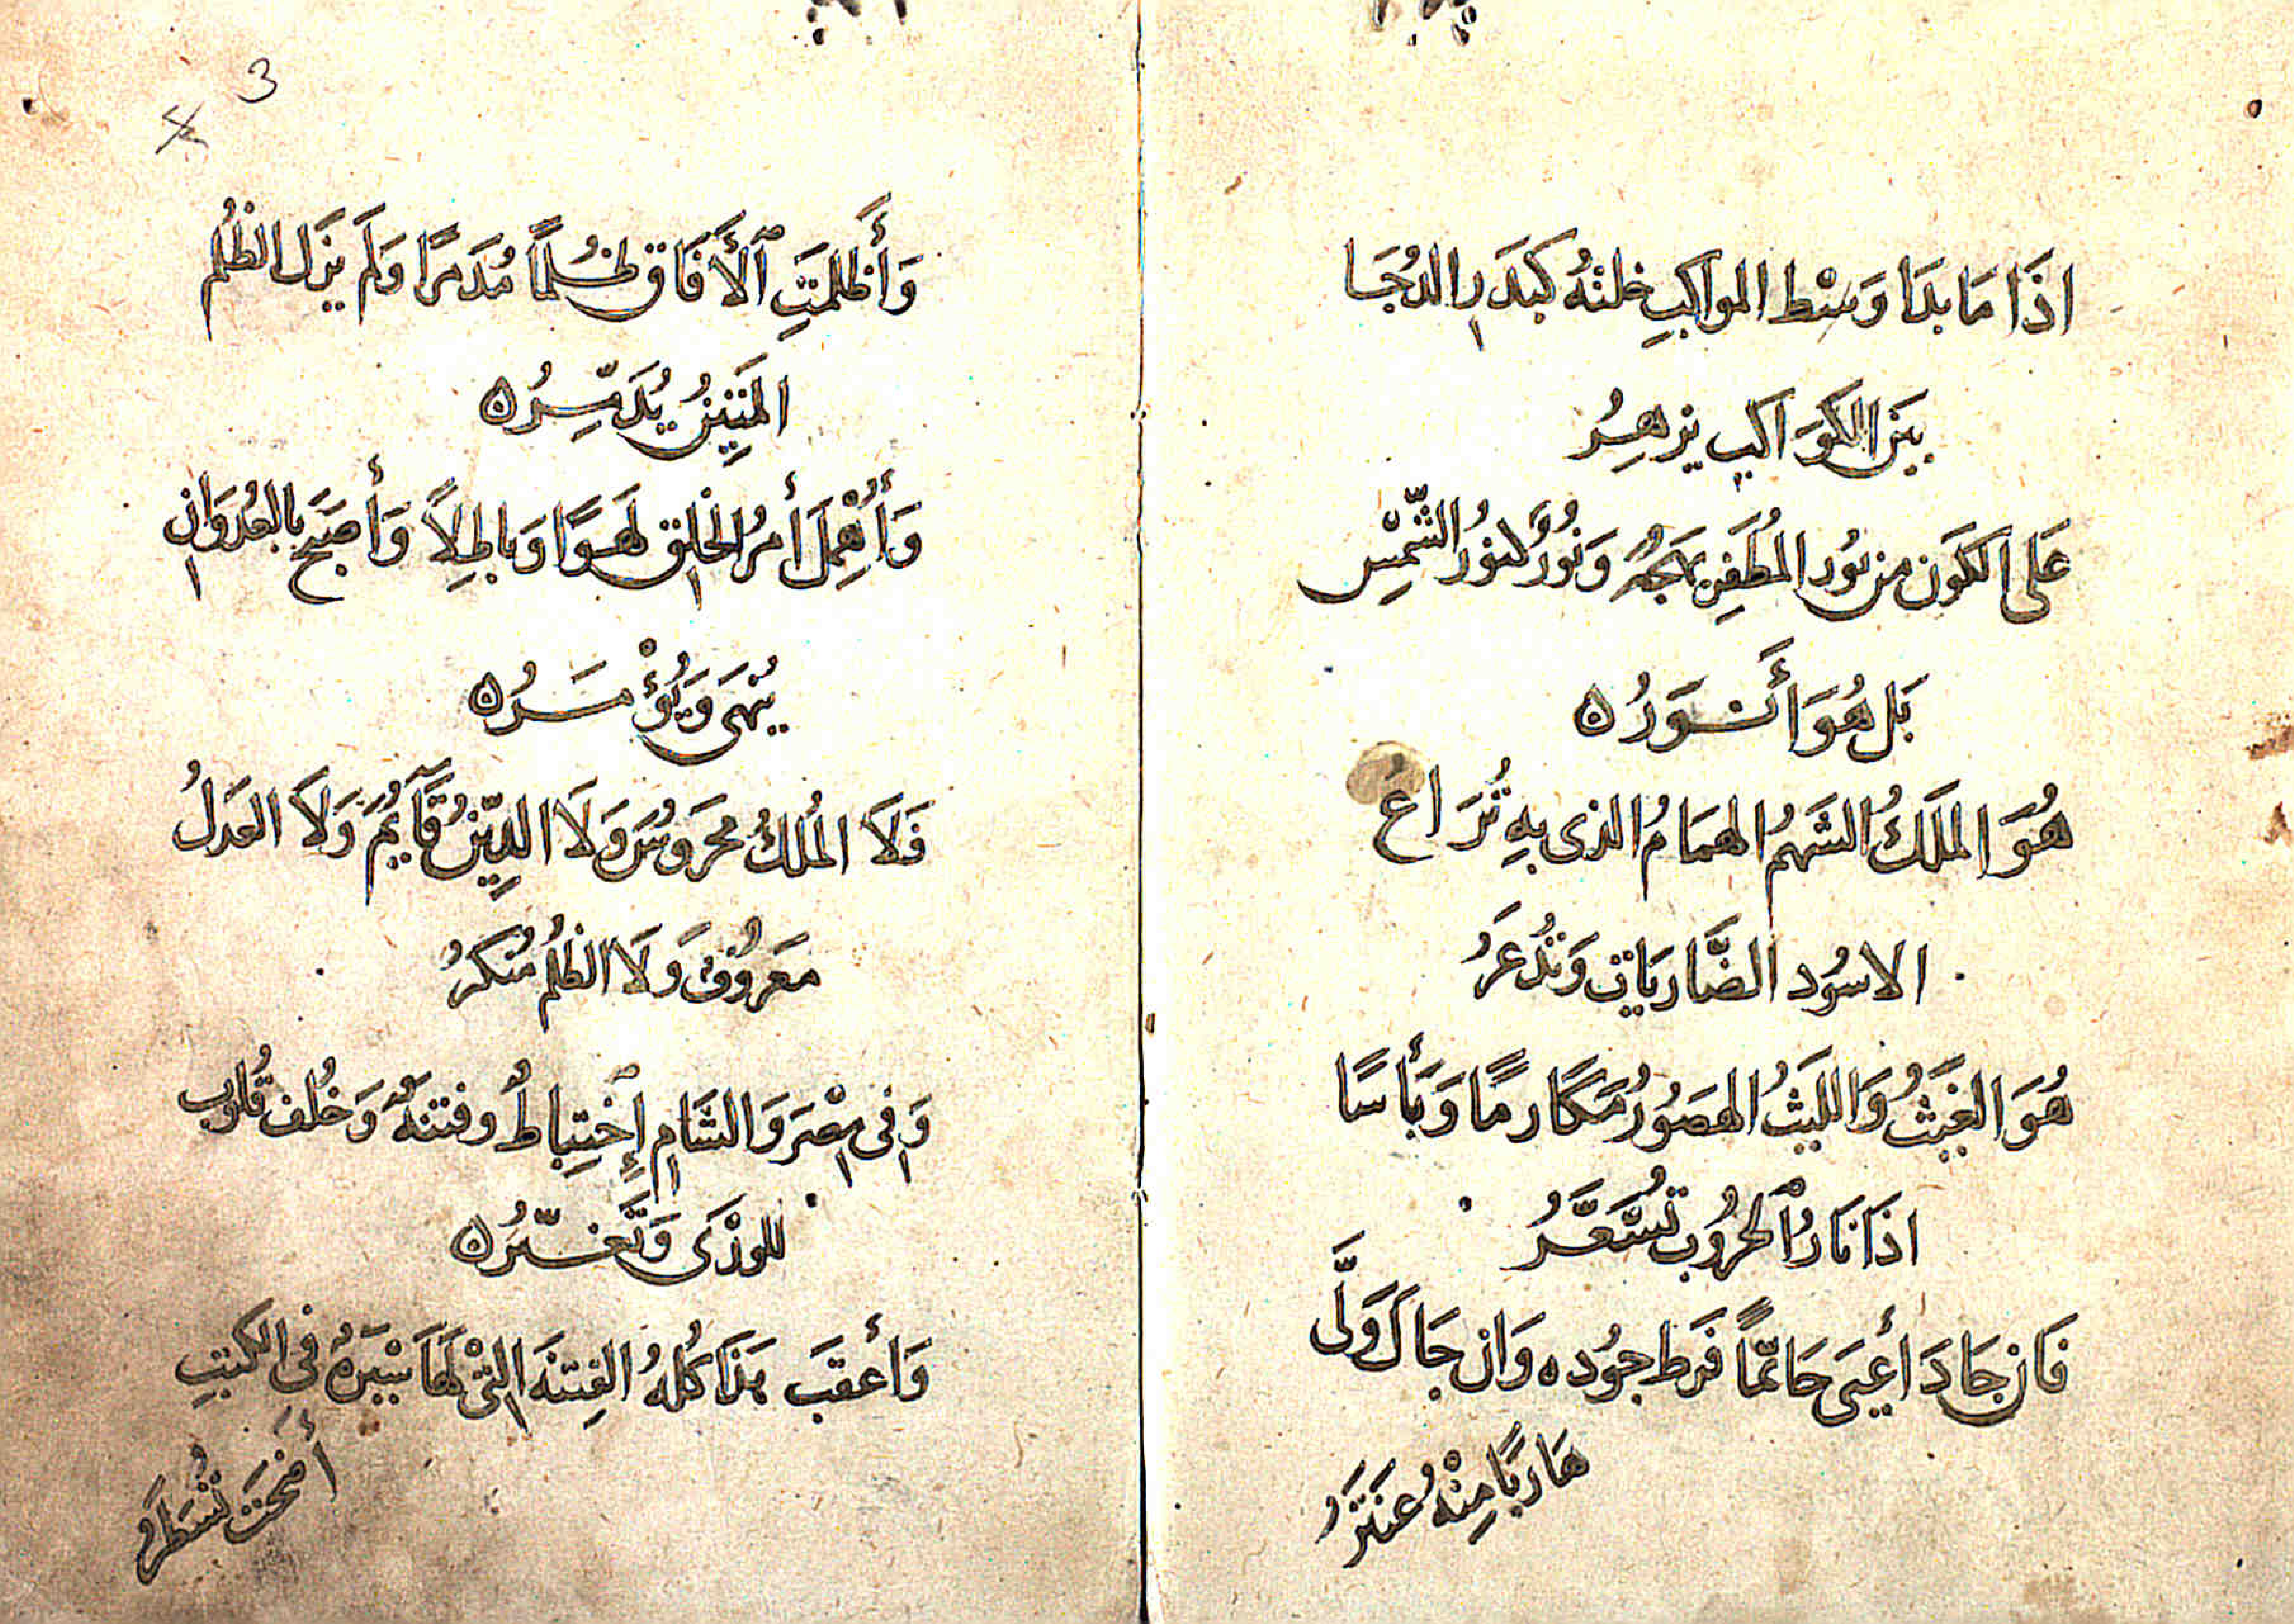 اذَا مَا بدَا وَسْط المواكبِ خلتهُ كبَدَرِ الدُجَا
بَيَن الكوَاكب يزهِرُ
عَلى الكَون من نوُر المُظَفرِ بَهجَةٌ وَنُورٌ كنوُر الشّمْسِ
بَل هُوَ أَنوَرُ ه
هُوَ المَلَكُ الشَهمُ الهمَامُ الذى بهِ تُرَاعُ
الاسوُد الضَّاريَات وَتُذعَرُ
هُوَ الغَيثُ وَالليَثُ الهصَوُرُ مَكَارمًا وَبَأسًا
اذَا نَارُ ٱلحرُوب تُسَّعَّرُ
فَان جَادَ أعيَى حَاتمّاً فَرَط جوُده وَان جَال وَلَّى
هَاربًا مِنْهُ عَنتَرُ
3
4
وَأَظلمَتِ ٱلأَفَاق ظُلمًا مُدَمرًا وَلَم يزَل الظُلُم
المَتِين يُدَمِّرُ ه
وَأُهْمِلَ أَمرُ الخلِق لَهوًا وَبَاطِلاً وَأَصبَح بالعُدوَانِ
يُنهَى وَيُؤْمَرُ ه
فَلَا المُلكُ محَروُسٌ وَلَا الدِّينُ قَآيمٌ وَلَا العَدَلُ
مَعَروُفٌ وَلَا الظلُمُ مُنكَرُ
وَفِى مِصْرَ وَالشَامِ ٱإِختِباطٌ وفتنَهٌ وَخُلف قُلوُب
للوَرْىَ وَتَغيّرُ ه
وَأَعقَبَ هَذَا كُلهُ الفِتنَة التِىْ لهَا سْيَرَهٌ فى الكتبِ
أَضحَت تُسَطَرُ